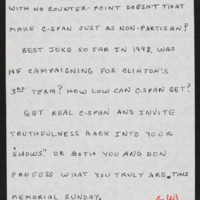 WITH NO COUNTER-POINT DOESN'T THAT
MAKE C-SPAN JUST AS NON-PARTISAN?
BEST JOKE SO FAR IN 1998, WAS
HE CAMPAIGNING FOR CLINTON'S
3RD TERM? HOW LOW CAN C-SPAN GET?
GET REAL C-SPAN AND INVITE
TRUTHFULNESS BACK INTO YOUR
"SHOWS," OR BOTH YOU AND DON
PROFESS WHAT YOU TRULY ARE, THIS
MEMORIAL SUNDAY.